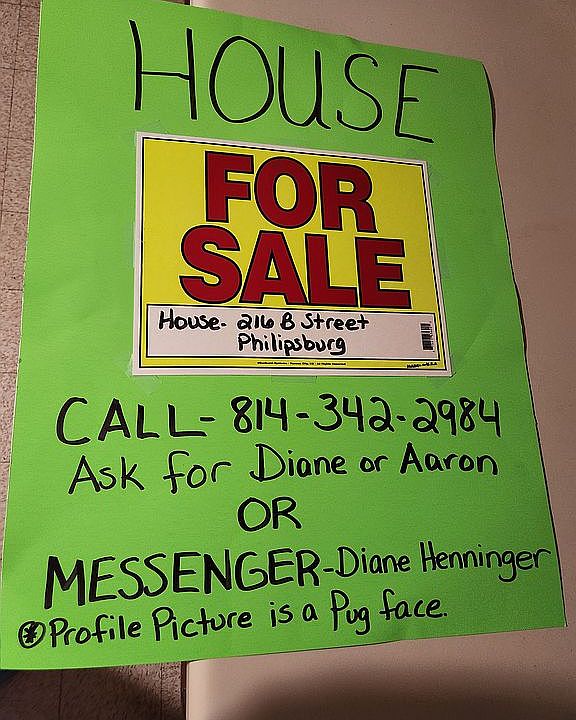 HOUSE
FOR
SALE
House- 216 B Street
Philipsburg
CALL- 814-342-2984
Ask for Diane or Aaron
OR
MESSENGER-Diane Henninger
* Profile Picture is a Pug face.